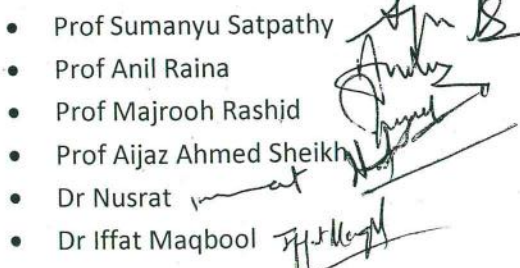 • Prof Sumanyu Satpathy
• Prof Anil Raina
• Prof Majrooh Rashid
• Prof Aijaz Ahmed Sheikh
• Dr Nusrat
• Dr Iffat Maqbool